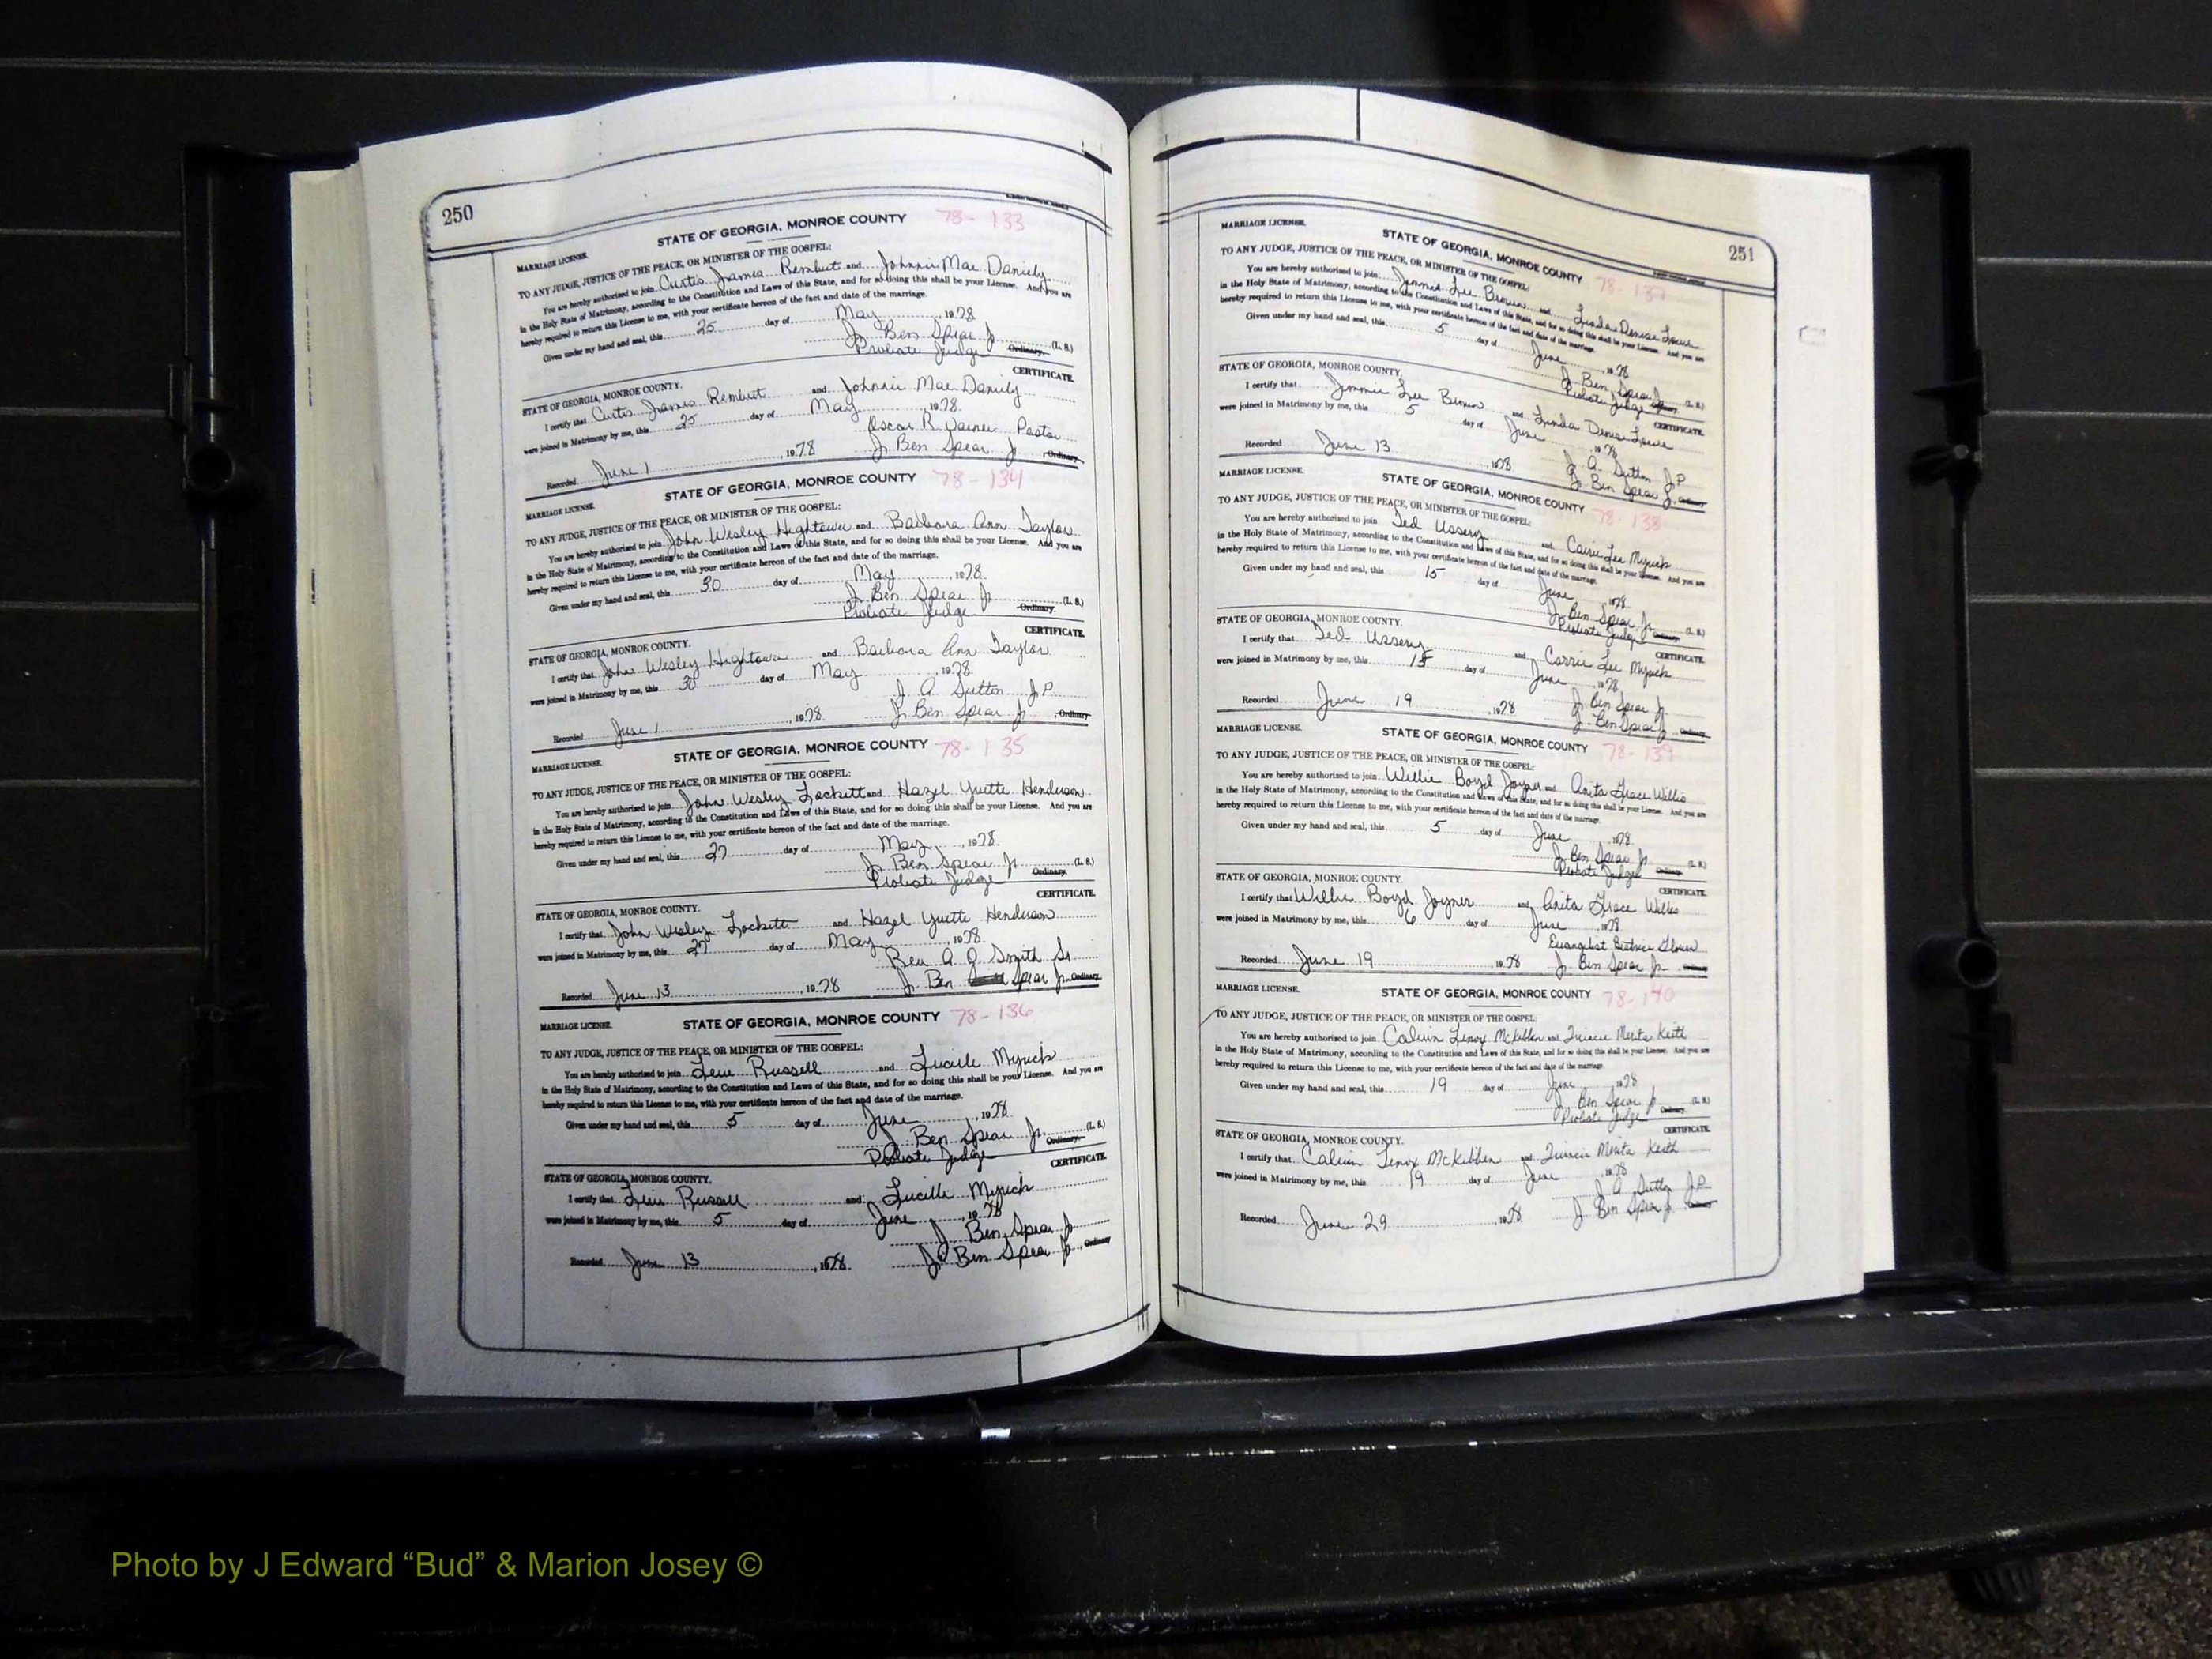 250
STATE OF GEORGIA, MONROE COUNTY 78-133
MARRIAGE LICENSE.
TO ANY JUDGE, JUSTICE OF THE PEACE, OR MINISTER OF THE GOSPEL:
You are hereby authorized to join Curtis James Rembert and Johnnie Mae Daniely
in the Holy State of Matrimony, according to the Constitution and Laws of this State, and for so doing this shall be your License. And you are
hereby required to return this License to me, with your certificate hereon of the fact and date of the marriage.
Given under my hand and seal, this 25 day of May, 1978
J. Ben Spear Jr (L. S.)
Probate Judge Ordinary.
CERTIFICATE.
STATE OF GEORGIA, MONROE COUNTY.
I certify that Curtis James Rembert and Johnnie Mae Daniely
were joined in Matrimony by me, this 25 day of May, 1978.
Oscar R. Pastor
Recorded June 1, 1978 J. Ben Spear Jr, Ordinary
STATE OF GEORGIA, MONROE COUNTY 78-134
MARRIAGE LICENSE.
TO ANY JUDGE, JUSTICE OF THE PEACE, OR MINISTER OF THE GOSPEL:
You are hereby authorized to join John Wesley Hightower and Barbara Ann Taylor
in the Holy State of Matrimony, according to the Constitution and Laws of this State, and for so doing this shall be your License. And you are
hereby required to return this License to me, with your certificate hereon of the fact and date of the marriage.
Given under my hand and seal, this 30 day of May, 1978
J. Ben Spear Jr (L. S.)
Probate Judge Ordinary.
CERTIFICATE.
STATE OF GEORGIA, MONROE COUNTY.
I certify that John Wesley Hightower and Barbara Ann Taylor
were joined in Matrimony by me, this 30 day of May, 1978
J. A. Sutton J.P.
Recorded June 1, 1978 J. Ben Spear Jr, Ordinary
STATE OF GEORGIA, MONROE COUNTY 78-135
MARRIAGE LICENSE.
TO ANY JUDGE, JUSTICE OF THE PEACE, OR MINISTER OF THE GOSPEL:
You are hereby authorized to join John Wesley Lockett and Hazel Yvette Henderson
in the Holy State of Matrimony, according to the Constitution and Laws of this State, and for so doing this shall be your License. And you are
hereby required to return this License to me, with your certificate hereon of the fact and date of the marriage.
Given under my hand and seal, this 27 day of May, 1978
J. Ben Spear Jr (L. S.)
Probate Judge Ordinary.
CERTIFICATE.
STATE OF GEORGIA, MONROE COUNTY.
I certify that John Wesley Lockett and Hazel Yvette Henderson
were joined in Matrimony by me, this 27 day of May, 1978
Smith Sr.
Recorded June 13, 1978 J. Ben Spear Jr, Ordinary
STATE OF GEORGIA, MONROE COUNTY 78-136
MARRIAGE LICENSE.
TO ANY JUDGE, JUSTICE OF THE PEACE, OR MINISTER OF THE GOSPEL:
You are hereby authorized to join Russell and Lucille Myrick
in the Holy State of Matrimony, according to the Constitution and Laws of this State, and for so doing this shall be your License. And you are
hereby required to return this License to me, with your certificate hereon of the fact and date of the marriage.
Given under my hand and seal, this 5 day of June, 1978
J. Ben Spear Jr. (L. S.)
Probate Judge Ordinary.
CERTIFICATE.
STATE OF GEORGIA, MONROE COUNTY.
I certify that Russell and Lucille Myrick
were joined in Matrimony by me, this 5 day of June, 1978
J. Ben Spear Jr
Recorded June 13, 1978 J. Ben Spear Jr, Ordinary
251
MARRIAGE LICENSE.
STATE OF GEORGIA, MONROE COUNTY 78-137
TO ANY JUDGE, JUSTICE OF THE PEACE, OR MINISTER OF THE GOSPEL:
You are hereby authorized to join Jimmie Lee Brown and Linda Denise
in the Holy State of Matrimony, according to the Constitution and Laws of this State, and for so doing this shall be your License. And you are
hereby required to return this License to me, with your certificate hereon of the fact and date of the marriage.
Given under my hand and seal, this 5 day of June, 1978
J. Ben Spear Jr (L. S.)
Probate Judge Ordinary.
STATE OF GEORGIA, MONROE COUNTY.
CERTIFICATE.
I certify that Jimmie Lee Brown and Linda Denise
were joined in Matrimony by me, this 5 day of June, 1978
J. A. Sutton J.P.
Recorded June 13, 1978 J. Ben Spear Jr. Ordinary
MARRIAGE LICENSE.
STATE OF GEORGIA, MONROE COUNTY 78-138
TO ANY JUDGE, JUSTICE OF THE PEACE, OR MINISTER OF THE GOSPEL:
You are hereby authorized to join Ted Ussery and Carrie Lee Myrick
in the Holy State of Matrimony, according to the Constitution and Laws of this State, and for so doing this shall be your License. And you are
hereby required to return this License to me, with your certificate hereon of the fact and date of the marriage.
Given under my hand and seal, this 15 day of June, 1978
J. Ben Spear Jr (L. S.)
Probate Judge Ordinary.
STATE OF GEORGIA, MONROE COUNTY.
CERTIFICATE.
I certify that Ted Ussery and Carrie Lee Myrick
were joined in Matrimony by me, this 15 day of June, 1978
J. Ben Spear Jr.
Recorded June 19, 1978 J. Ben Spear Jr. Ordinary
MARRIAGE LICENSE.
STATE OF GEORGIA, MONROE COUNTY 78-139
TO ANY JUDGE, JUSTICE OF THE PEACE, OR MINISTER OF THE GOSPEL:
You are hereby authorized to join Willie Boyd Joyner and Anita Grace Willis
in the Holy State of Matrimony, according to the Constitution and Laws of this State, and for so doing this shall be your License. And you are
hereby required to return this License to me, with your certificate hereon of the fact and date of the marriage.
Given under my hand and seal, this 5 day of June, 1978
J. Ben Spear Jr. (L. S.)
Probate Judge Ordinary.
STATE OF GEORGIA, MONROE COUNTY.
CERTIFICATE.
I certify that Willie Boyd Joyner and Anita Grace Willis
were joined in Matrimony by me, this 6 day of June, 1978
Evangelist Beatrice Glover
Recorded June 19, 1978 J. Ben Spear Jr Ordinary
MARRIAGE LICENSE.
STATE OF GEORGIA, MONROE COUNTY 78-140
TO ANY JUDGE, JUSTICE OF THE PEACE, OR MINISTER OF THE GOSPEL:
You are hereby authorized to join Calvin Lenox McKibben and Keith
in the Holy State of Matrimony, according to the Constitution and Laws of this State, and for so doing this shall be your License. And you are
hereby required to return this License to me, with your certificate hereon of the fact and date of the marriage.
Given under my hand and seal, this 19 day of June, 1978
J. Ben Spear Jr (L. S.)
Probate Judge Ordinary.
STATE OF GEORGIA, MONROE COUNTY.
CERTIFICATE.
I certify that Calvin Lenox McKibben and Keith
were joined in Matrimony by me, this 19 day of June, 1978
J. A. Sutton J.P.
Recorded June 29, 1978 J. Ben Spear Jr. Ordinary
Photo by J Edward “Bud” & Marion Josey ©